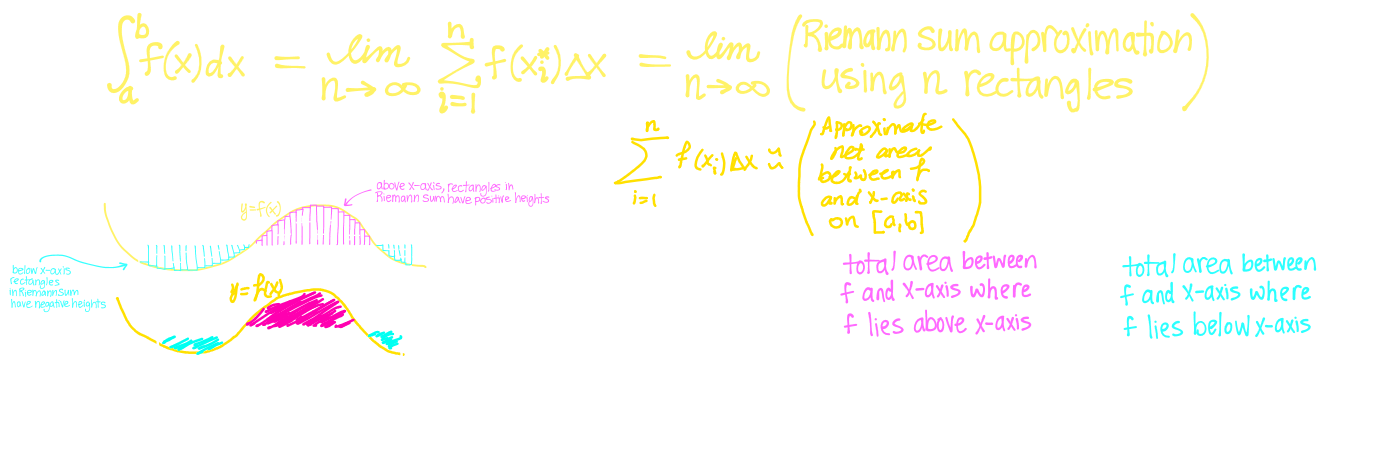 ∫_a^b f(x)dx = lim_{n→∞} ∑_{i=1}^{n} f(x_i^*)Δx = lim_{n→∞} (Riemann sum approximation
using n rectangles)
∑_{i=1}^{n} f(x_i)Δx ≈ (Approximate
net area
between f
and x-axis
on [a,b])
above x-axis, rectangles in
Riemann sum have positive heights
y=f(x)
below x-axis
rectangles
in Riemann sum
have negative heights
y=f(x)
total area between
f and x-axis where
f lies above x-axis
total area between
f and x-axis where
f lies below x-axis